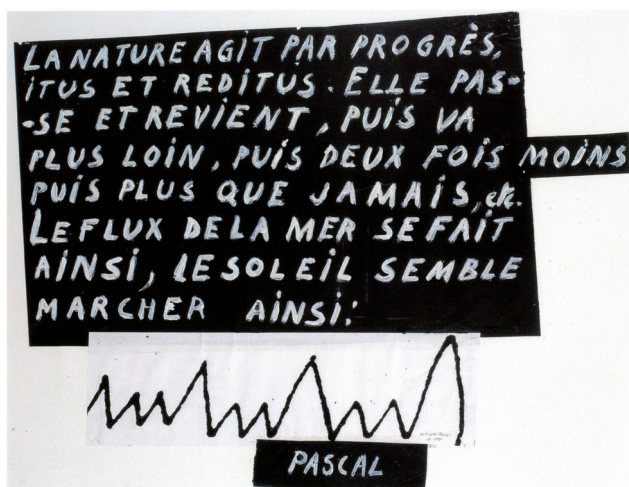 LA NATURE AGIT PAR PROGRÈS,
ITUS ET REDITUS. ELLE PAS-
-SE ET REVIENT, PUIS VA
PLUS LOIN, PUIS DEUX FOIS MOINS
PUIS PLUS QUE JAMAIS, etc.
LE FLUX DE LA MER SE FAIT
AINSI, LE SOLEIL SEMBLE
MARCHER AINSI:
PASCAL